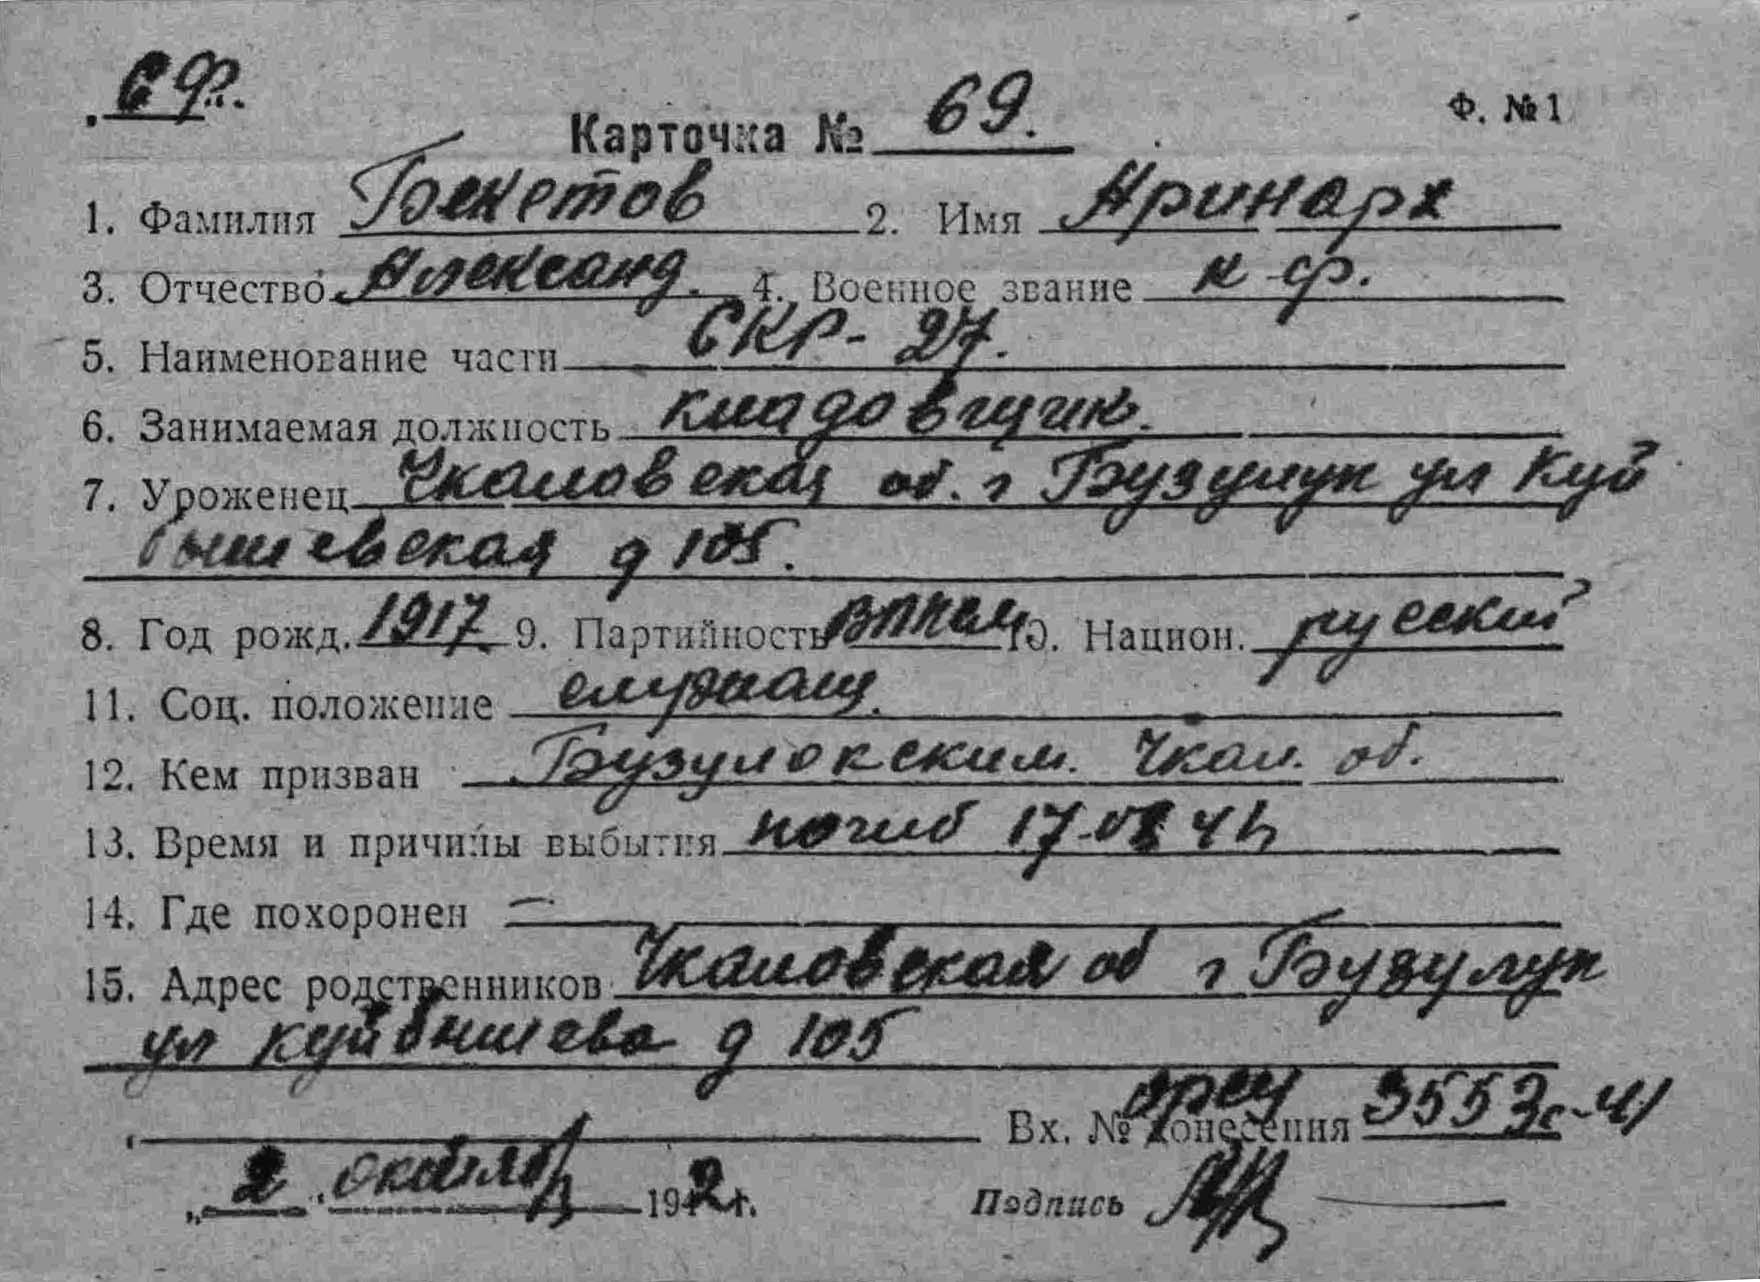 СФ.
Карточка № 69. Ф. № 1
1. Фамилия Бекетов 2. Имя Аринарх
3. Отчество Александ. 4. Военное звание к-ф.
5. Наименование части СКР-27.
6. Занимаемая должность кладовщик.
7. Уроженец Чкаловская об. г Бузулук ул Куй
бышевская д 105.
8. Год рожд. 1917 9. Партийность 10. Национ. русский
11. Соц. положение служащ.
12. Кем призван Бузулокским. Чкал. об.
13. Время и причины выбытия погиб 17
14. Где похоронен —
15. Адрес родственников Чкаловская об г Бузулук
ул Куйбышева д 105
Вх. № донесения 3553с-41
„2 октября 1942 г. Подпись